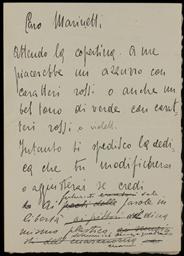 Caro Marinetti
attendo la copertina. a me
piacerebbe un azzurro con
caratteri rossi o anche un
bel tono di verde con carat
teri rossi o violetti.
Intanto ti spedisco la dedi
ca che tu modificherai
o aggiusterai se credi
futuristi
ai poeti delle parole in
libertà
plastico